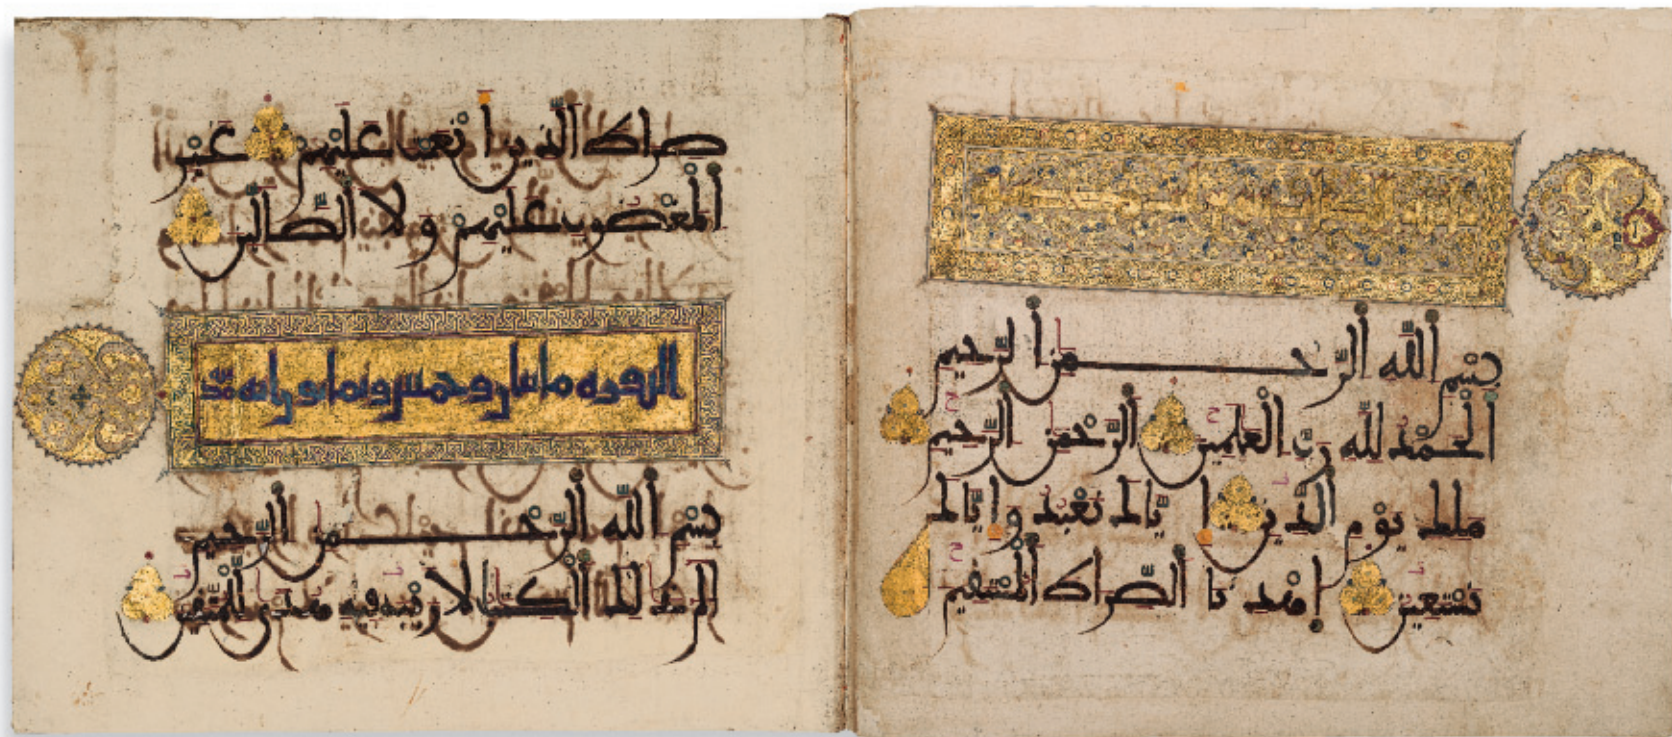 بسم الله الرحمن الرحيم
الحمد لله رب العلمين الرحمن الرحيم
ملك يوم الدين اياك نعبد واياك
نستعين اهدنا الصراط المستقيم
صراط الذين انعمت عليهم غير
المغضوب عليهم ولا الضالين
البقره مائتان وخمس وثمانون ايه مدنيه
بسم الله الرحمن الرحيم
الم ذلك الكتب لا ريب فيه هدى للمتقين